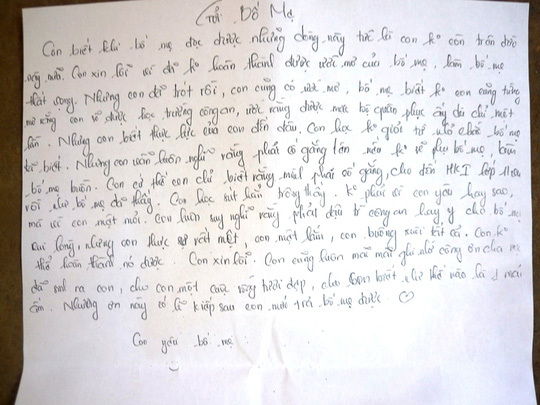 Gửi Bố Mẹ
Con biết khi bố mẹ đọc được những dòng này tức là con ko còn trên đời
này nữa. Con xin lỗi vì đã ko hoàn thành được ước mơ của bố mẹ, làm bố mẹ
thất vọng. Nhưng con đã trót rồi, con cũng có ước mơ, bố mẹ biết ko con cũng từng
mơ rằng con sẽ được học trường công an, ước rằng được mặc bộ quân phục ấy dù chỉ một
lần. Nhưng con biết thực lực của con đến đâu. Con học ko giỏi từ nhỏ chắc bố mẹ
đã biết. Nhưng con luôn luôn nghĩ rằng phải cố gắng lên nếu ko sẽ phụ bố mẹ, làm
bố mẹ buồn. Con có thể con chỉ biết rằng mình phải cố gắng, cho đến HKI lớp
rồi như bố mẹ đã thấy. Con học sút hẳn trông thấy. ko phải vì con yêu hay sao,
mà vì con mệt mỏi. Con luôn suy nghĩ rằng phải đậu trường công an hay y cho bố mẹ
vui lòng, nhưng con thực sự rất mệt, con mệt lắm, con buông xuôi tất cả. Con ko
thể hoàn thành nó được. Con xin lỗi. Con cũng luôn mãi mãi ghi nhớ công ơn cha mẹ
đã sinh ra con, cho con một cuộc sống tươi đẹp, cho con biết như thế nào là 1 mái
ấm. Nhưng ơn này có lẽ kiếp sau con mới trả bố mẹ được ♡
Con yêu bố mẹ